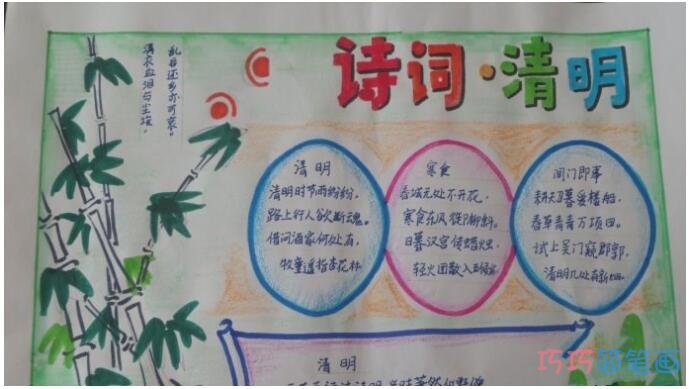 诗词·清明
乱后还乡亦可哀。
满衣血泪与尘埃。
清明
清明时节雨纷纷,
路上行人欲断魂。
借问酒家何处有,
牧童遥指杏花村.
寒食
春城无处不开花,
寒食东风御柳斜。
日暮汉宫传蜡烛,
轻火团散入五侯家.
阊门即事
耕夫召募爱楼船,
春草青青万项田。
试上吴门窥郡郭,
清明几处有新烟。
清明
巧巧简笔画